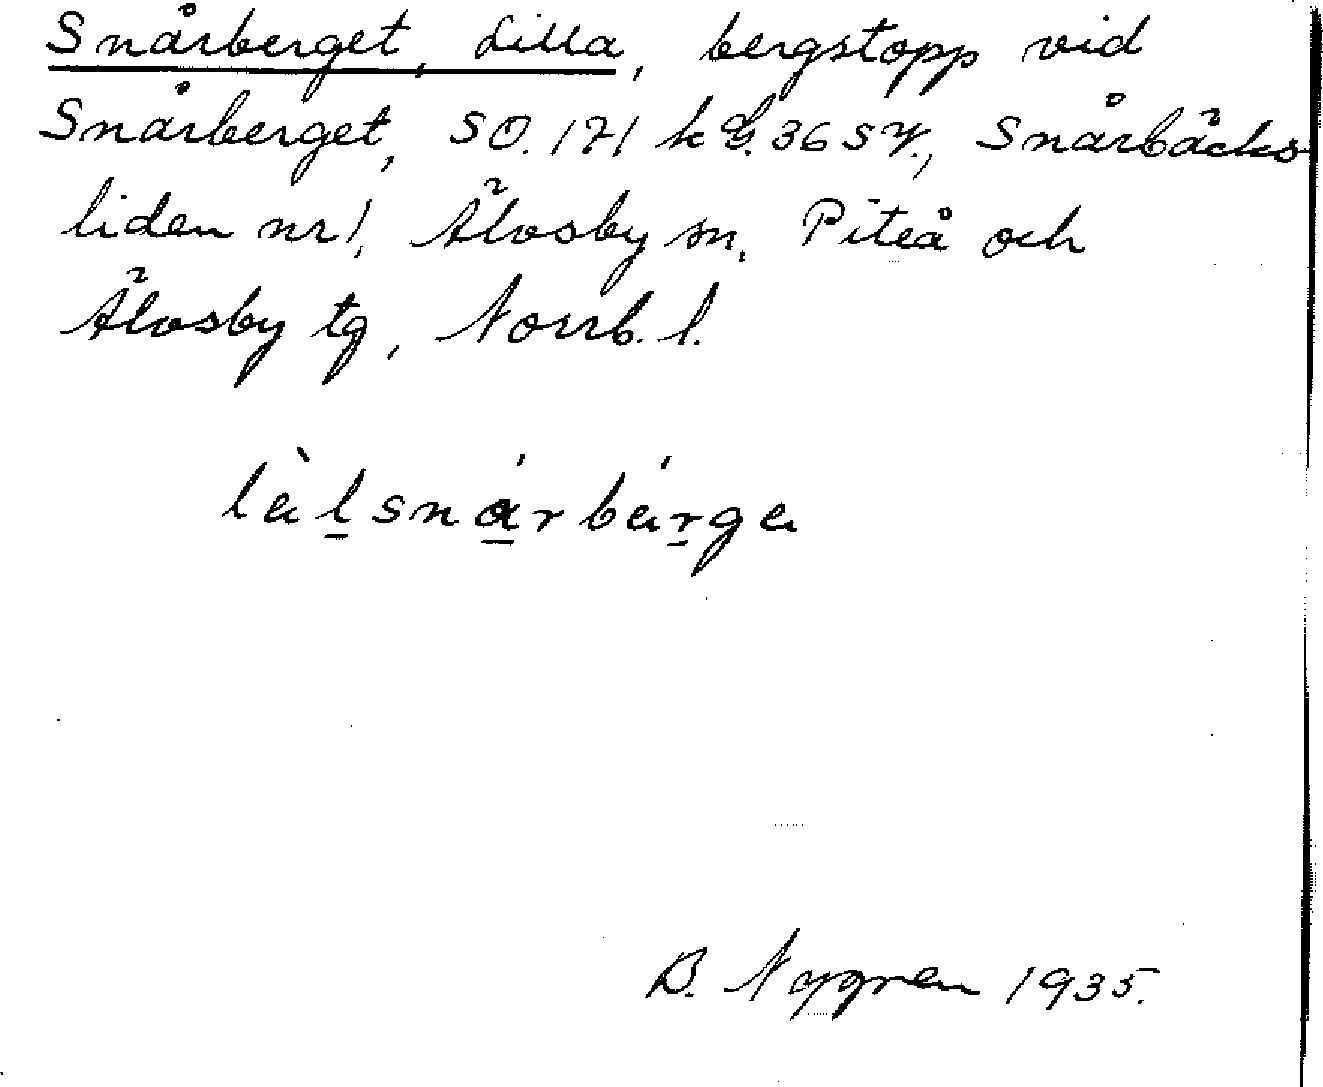 Snårberget, Lilla, bergstopp vid
Snårberget, SO. 171 k G. 36 SV., Snårbäcks-
liden nr 1, Älvsby sn, Piteå och
Älvsby tg, Norrb. l.
làlsnárbárga
B. Nygren 1935.